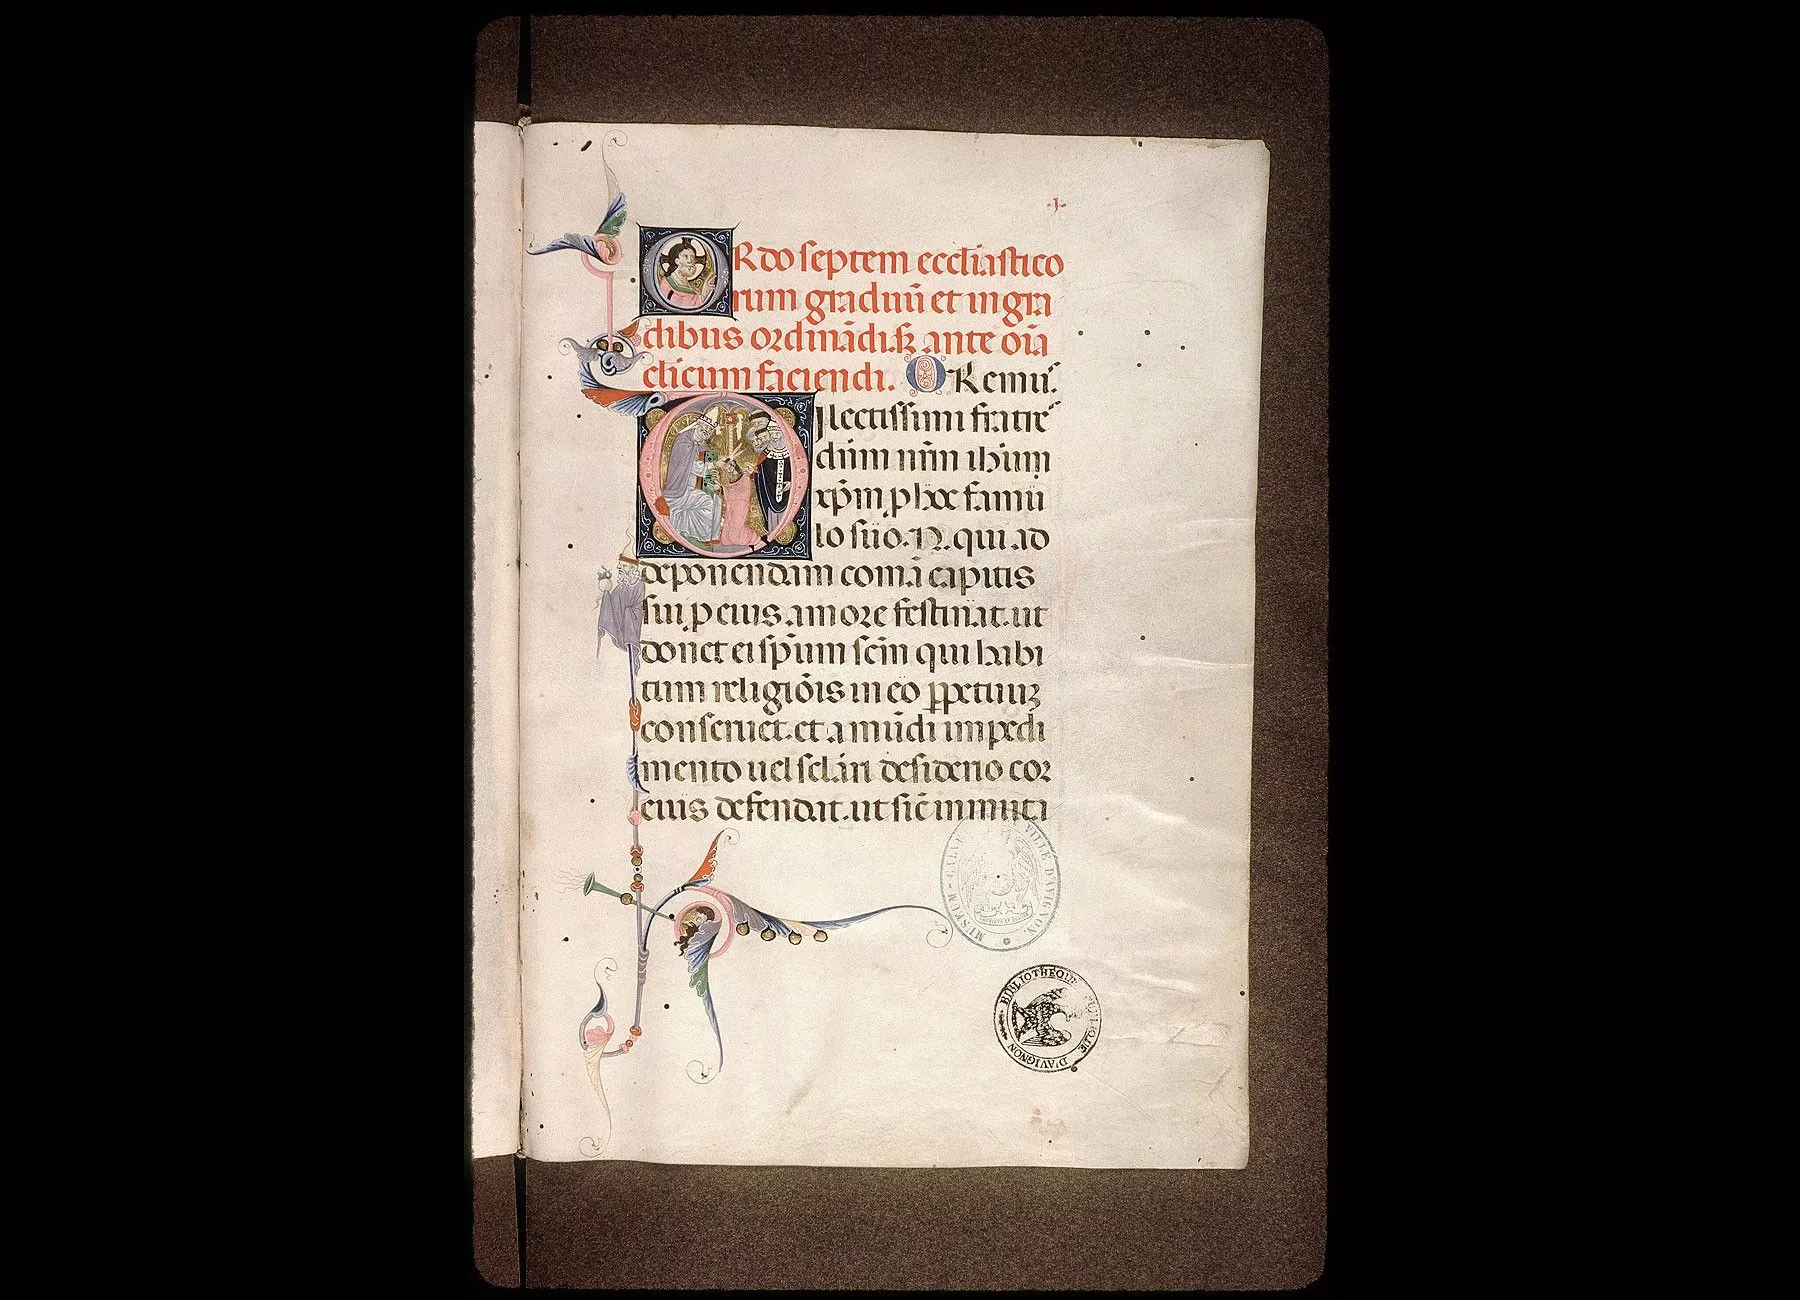 .1.
ORdo septem eccl̄iastico
rum graduū et in gra
dibus ordinādis ꝫ ante oīa
clicum faciendi. ORemus̄.
Dilectissimi fratres
dūm nr̄m ih̄um
xp̄m ꝓ hoc famu
lo suo .N. qui ad
deponendam comā capitis
sui ꝓ eius amore festinat. ut
donet ei sp̄um sc̄m qui habi
tum religiōis in eo ꝑpetuuꝫ
conseruet. et a mūdi impedi
mento uel sc̄lari desiderio cor
eius defendat. ut sic̄ inmuti
MUSEUM-CALVET VILLE D'AVIGNON.
BIBLIOTHEQUE PUBLIQUE D'AVIGNON